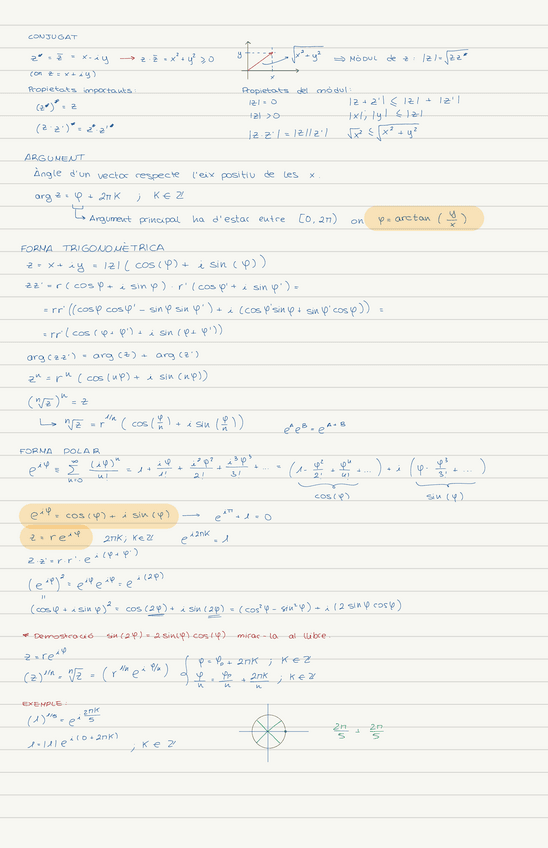 CONJUGAT
z* = z̄ = x - iy ⟶ z · z̄ = x² + y² ≥ 0
(on z = x + iy)
y √x² + y² ⟹ MÒDUL de z: |z| = √zz*
x
Propietats importants:
(z*)* = z
(z·z')* = z*·z'*
Propietats del mòdul:
|z| = 0 |z + z'| ≤ |z| + |z'|
|z| > 0 |x|, |y| ≤ |z|
|z·z'| = |z||z'| √x² ≤ √x² + y²
ARGUMENT
Angle d'un vector respecte l'eix positiu de les x.
arg z = φ + 2πK ; K ∈ ℤ
↳ Argument principal ha d'estar entre [0, 2π) on φ = arctan (y/x)
FORMA TRIGONOMÈTRICA
z = x + iy = |z| (cos(φ) + i sin(φ))
zz' = r (cos φ + i sin φ) · r' (cos φ' + i sin φ') =
= rr' ((cos φ cos φ' - sin φ sin φ') + i (cos φ' sin φ + sin φ' cos φ)) =
= rr' (cos(φ+φ') + i sin(φ+φ'))
arg(zz') = arg(z) + arg(z')
zⁿ = rⁿ (cos(nφ) + i sin(nφ))
(ⁿ√z)ⁿ = z
↳ ⁿ√z = r^1/n (cos(φ/n) + i sin(φ/n)) e^A e^B = e^A+B
FORMA POLAR
e^iφ = ∑ n=0 ∞ (iφ)ⁿ/n! = 1 + iφ/1! + i²φ²/2! + i³φ³/3! + ... = (1 - φ²/2! + φ⁴/4! + ...) + i (φ - φ³/3! + ...)
cos(φ) sin(φ)
e^iφ = cos(φ) + i sin(φ) ⟶ e^iπ + 1 = 0
z = r e^iφ 2πK; K∈ℤ e^i2πK = 1
z·z' = r·r'·e^i(φ+φ')
(e^iφ)² = e^iφ e^iφ = e^i(2φ)
=
(cos φ + i sin φ)² = cos(2φ) + i sin(2φ) = (cos²φ - sin²φ) + i (2 sin φ cos φ)
* Demostració sin(2φ) = 2 sin(φ) cos(φ) mirar-la al llibre.
z = re^iφ
(z)^1/n = ⁿ√z = (r^1/n e^iφ/n) φ = φ₀ + 2πK ; K ∈ ℤ
φ/n = φ₀/n + 2πK/n ; K ∈ ℤ
EXEMPLE:
(1)^1/5 = e^i 2πK/5
1 = |1| e^i(0+2πK) , K ∈ ℤ
2π/5 + 2π/5